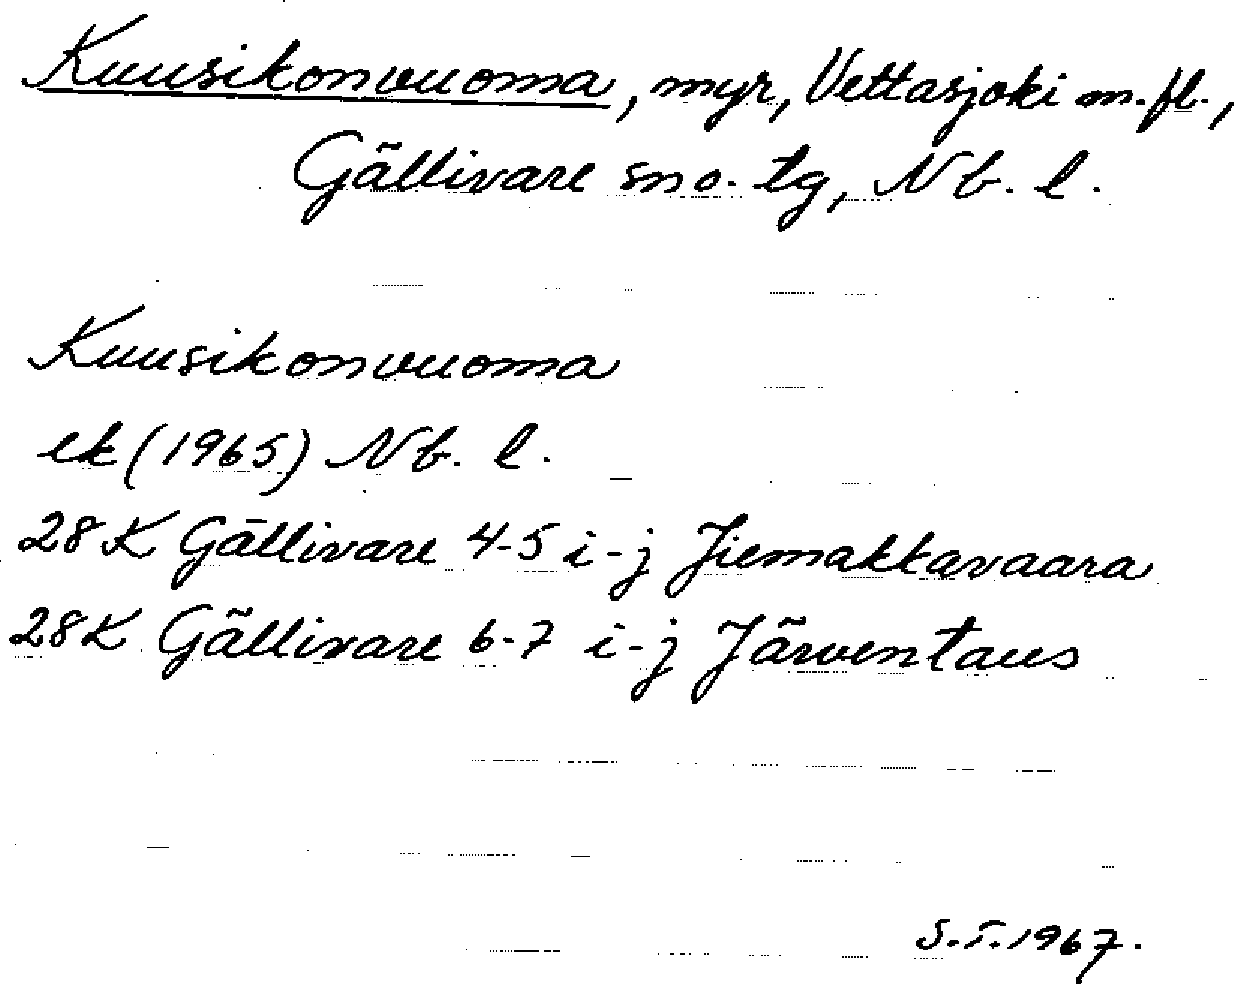 Kuusikonvuoma, myr, Vettasjoki m. fl.,
Gällivare sno. tg, Nb. l.
Kuusikonvuoma
ek (1965) Nb. l.
28K Gällivare 4-5 i-j Jiemakkavaara
28K Gällivare 6-7 i-j Järventaus
S.I. 1967.